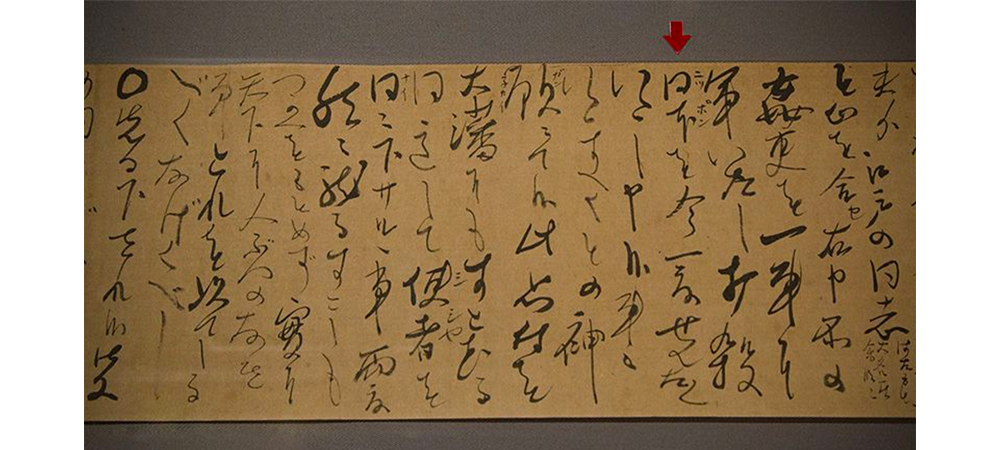 夫分江戸の同志はたもと大名其余段々
と心を合セ右申所の
姦吏を一事に
軍いたし打殺
日本を今一度せんたく
ニッポン
いたし申候事に
いたすべくとの神
願にて候此思付を
大藩にもすこむる
同意して使者を
シシャ
内々下サルヽ事両度
然ニ龍馬すこしも
つかへをもとめず実に
天下に人ぶつのなき
事これを以てしる
べくなげくべし
〇先日下され候御文